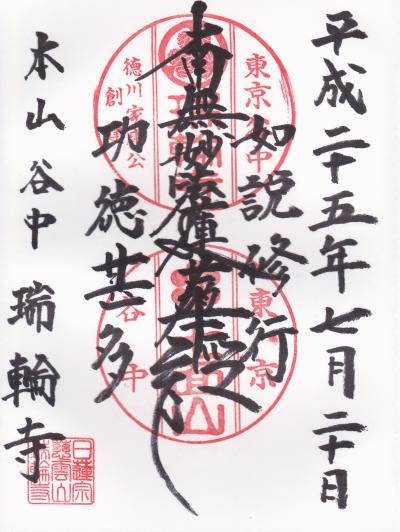 平成二十五年七月二十日
如説修行
南無妙法蓮華経
功徳甚多
本山 谷中 瑞輪寺
東京谷中
徳川家康公
創建
東京
谷中
日蓮宗
慈雲山
瑞輪寺